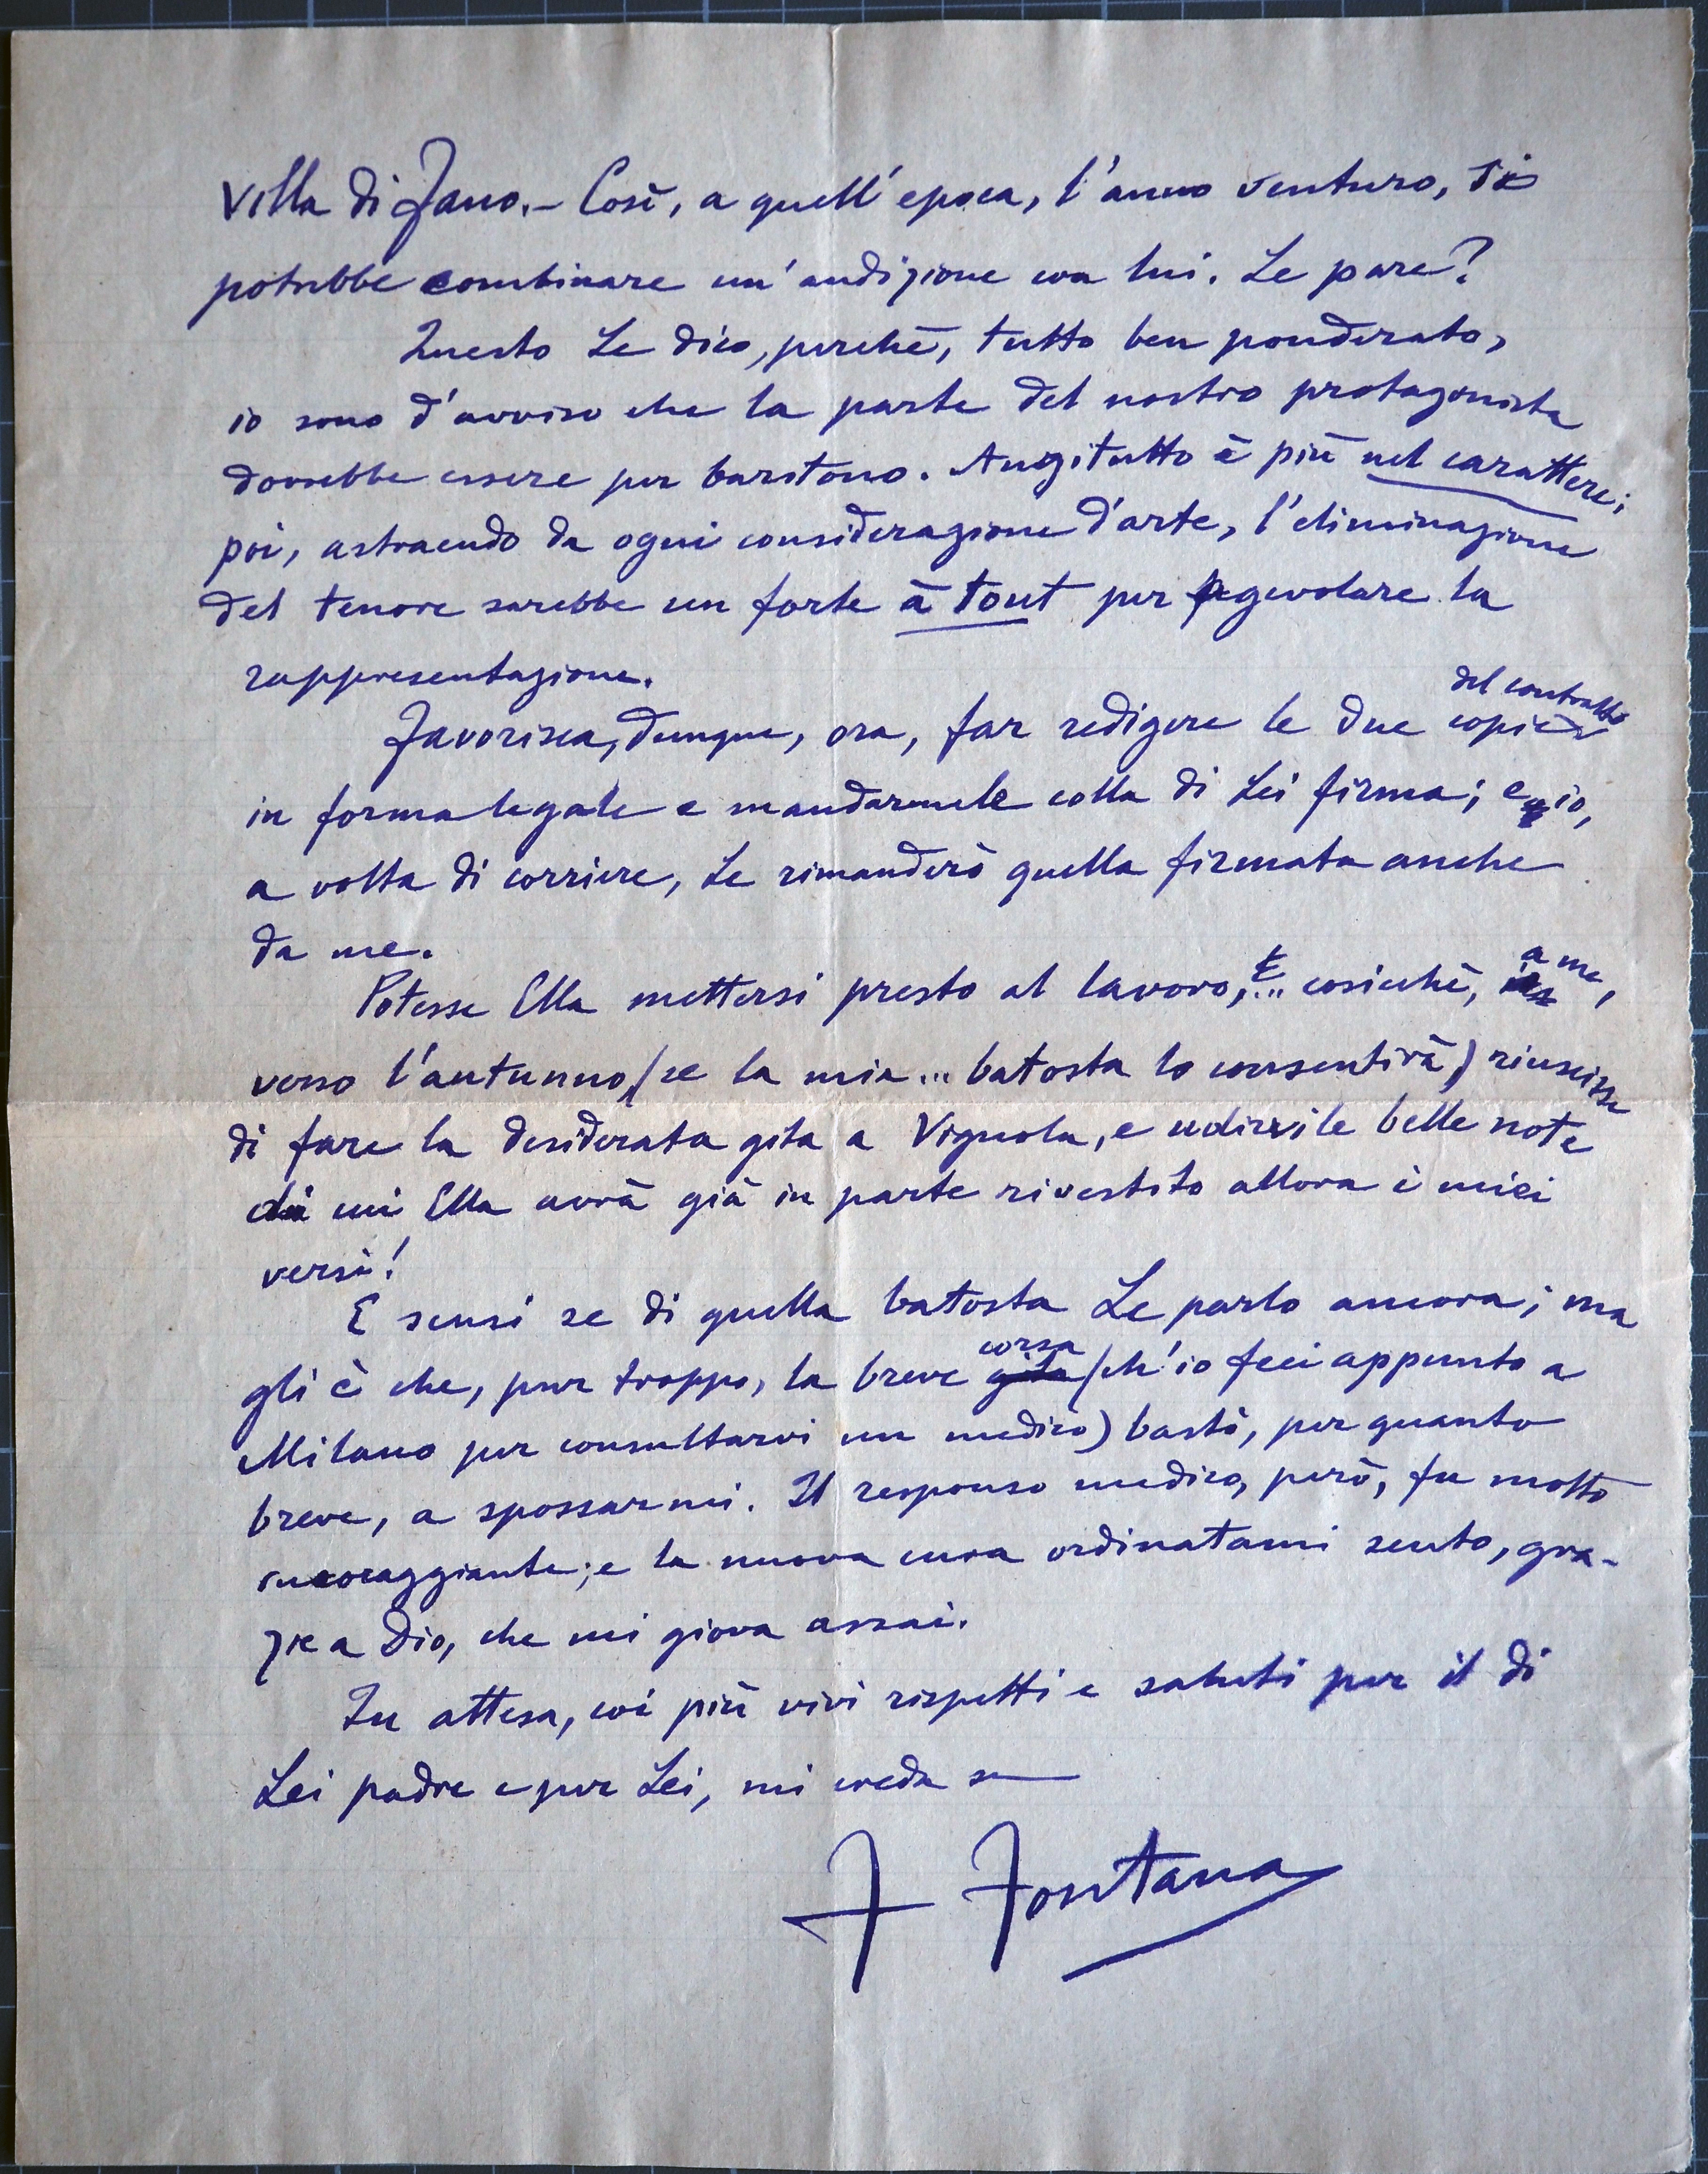 villa di Fano.- Così, a quell'epoca, l'anno venturo, si
potrebbe combinare un'audizione con lui. Le pare?
Questo Le dico, perchè, tutto ben ponderato,
io sono d'avviso che la parte del nostro protagonista
dovrebbe essere per baritono. Anzitutto è più nel carattere;
poi, astraendo da ogni considerazione d'arte, l'eliminazione
del tenore sarebbe un forte à tout per agevolare la
rappresentazione.
del contratto
Favorisca, dunque, ora, far redigere le due copie
in forma legale e mandarmele colla di Lei firma; e io,
a volta di corriere, Le rimanderò quella firmata anche
da me.
a me,
Potesse Ella mettersi presto al lavoro, e... cosicchè,
verso l'autunno (se la mia... batosta lo consentirà) riuscisse
di fare la desiderata gita a Vignola, e udirvi le belle note
di cui Ella avrà già in parte rivestito allora i miei
versi!
E scusi se di quella batosta Le parlo ancora; ma
corsa
gli è che, pur troppo, la breve gita (ch'io feci appunto a
Milano per consultarvi un medico) bastò, per quanto
breve, a spossarmi. Il responso medico, però, fu molto
incoraggiante; e la nuova cura ordinatami sento, gra-
zie a Dio, che mi giova assai.
In attesa, coi più vivi rispetti e saluti per il di
Lei padre e per Lei, mi creda suo
F Fontana